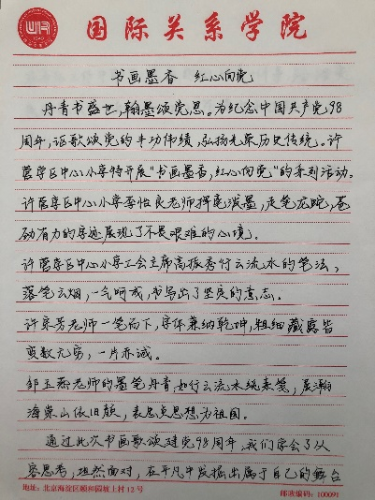 国际关系学院
书画墨香 红心向党
丹青书盛世,翰墨颂党恩。为纪念中国共产党98
周年,讴歌颂党的丰功伟绩,弘扬光荣历史传统。许
营学区中心小学特开展“书画墨香,红心向党”的系列活动。
许营学区中心小学李怀良老师挥毫泼墨,走笔龙蛇,苍
劲有力的字迹展现了不畏艰难的心境。
许营学区中心小学工会主席高振秀行云流水的笔法,
落笔云烟,一气呵成,书写出了坚贞的意志。
许东芳老师一笔而下,字体兼纳乾坤,粗细藏露皆
变数无穷,一片赤诚。
邹玉燕老师的墨笔丹青,如行云流水绕素笺,展瀚
海崇山依旧颜,表忠贞思想为祖国。
通过此次书画歌颂建党98周年,我们学会了从
容思考,坦然面对,在平凡中发掘出属于自己的舞台
地址:北京海淀区颐和园坡上村12号 邮政编码:100091